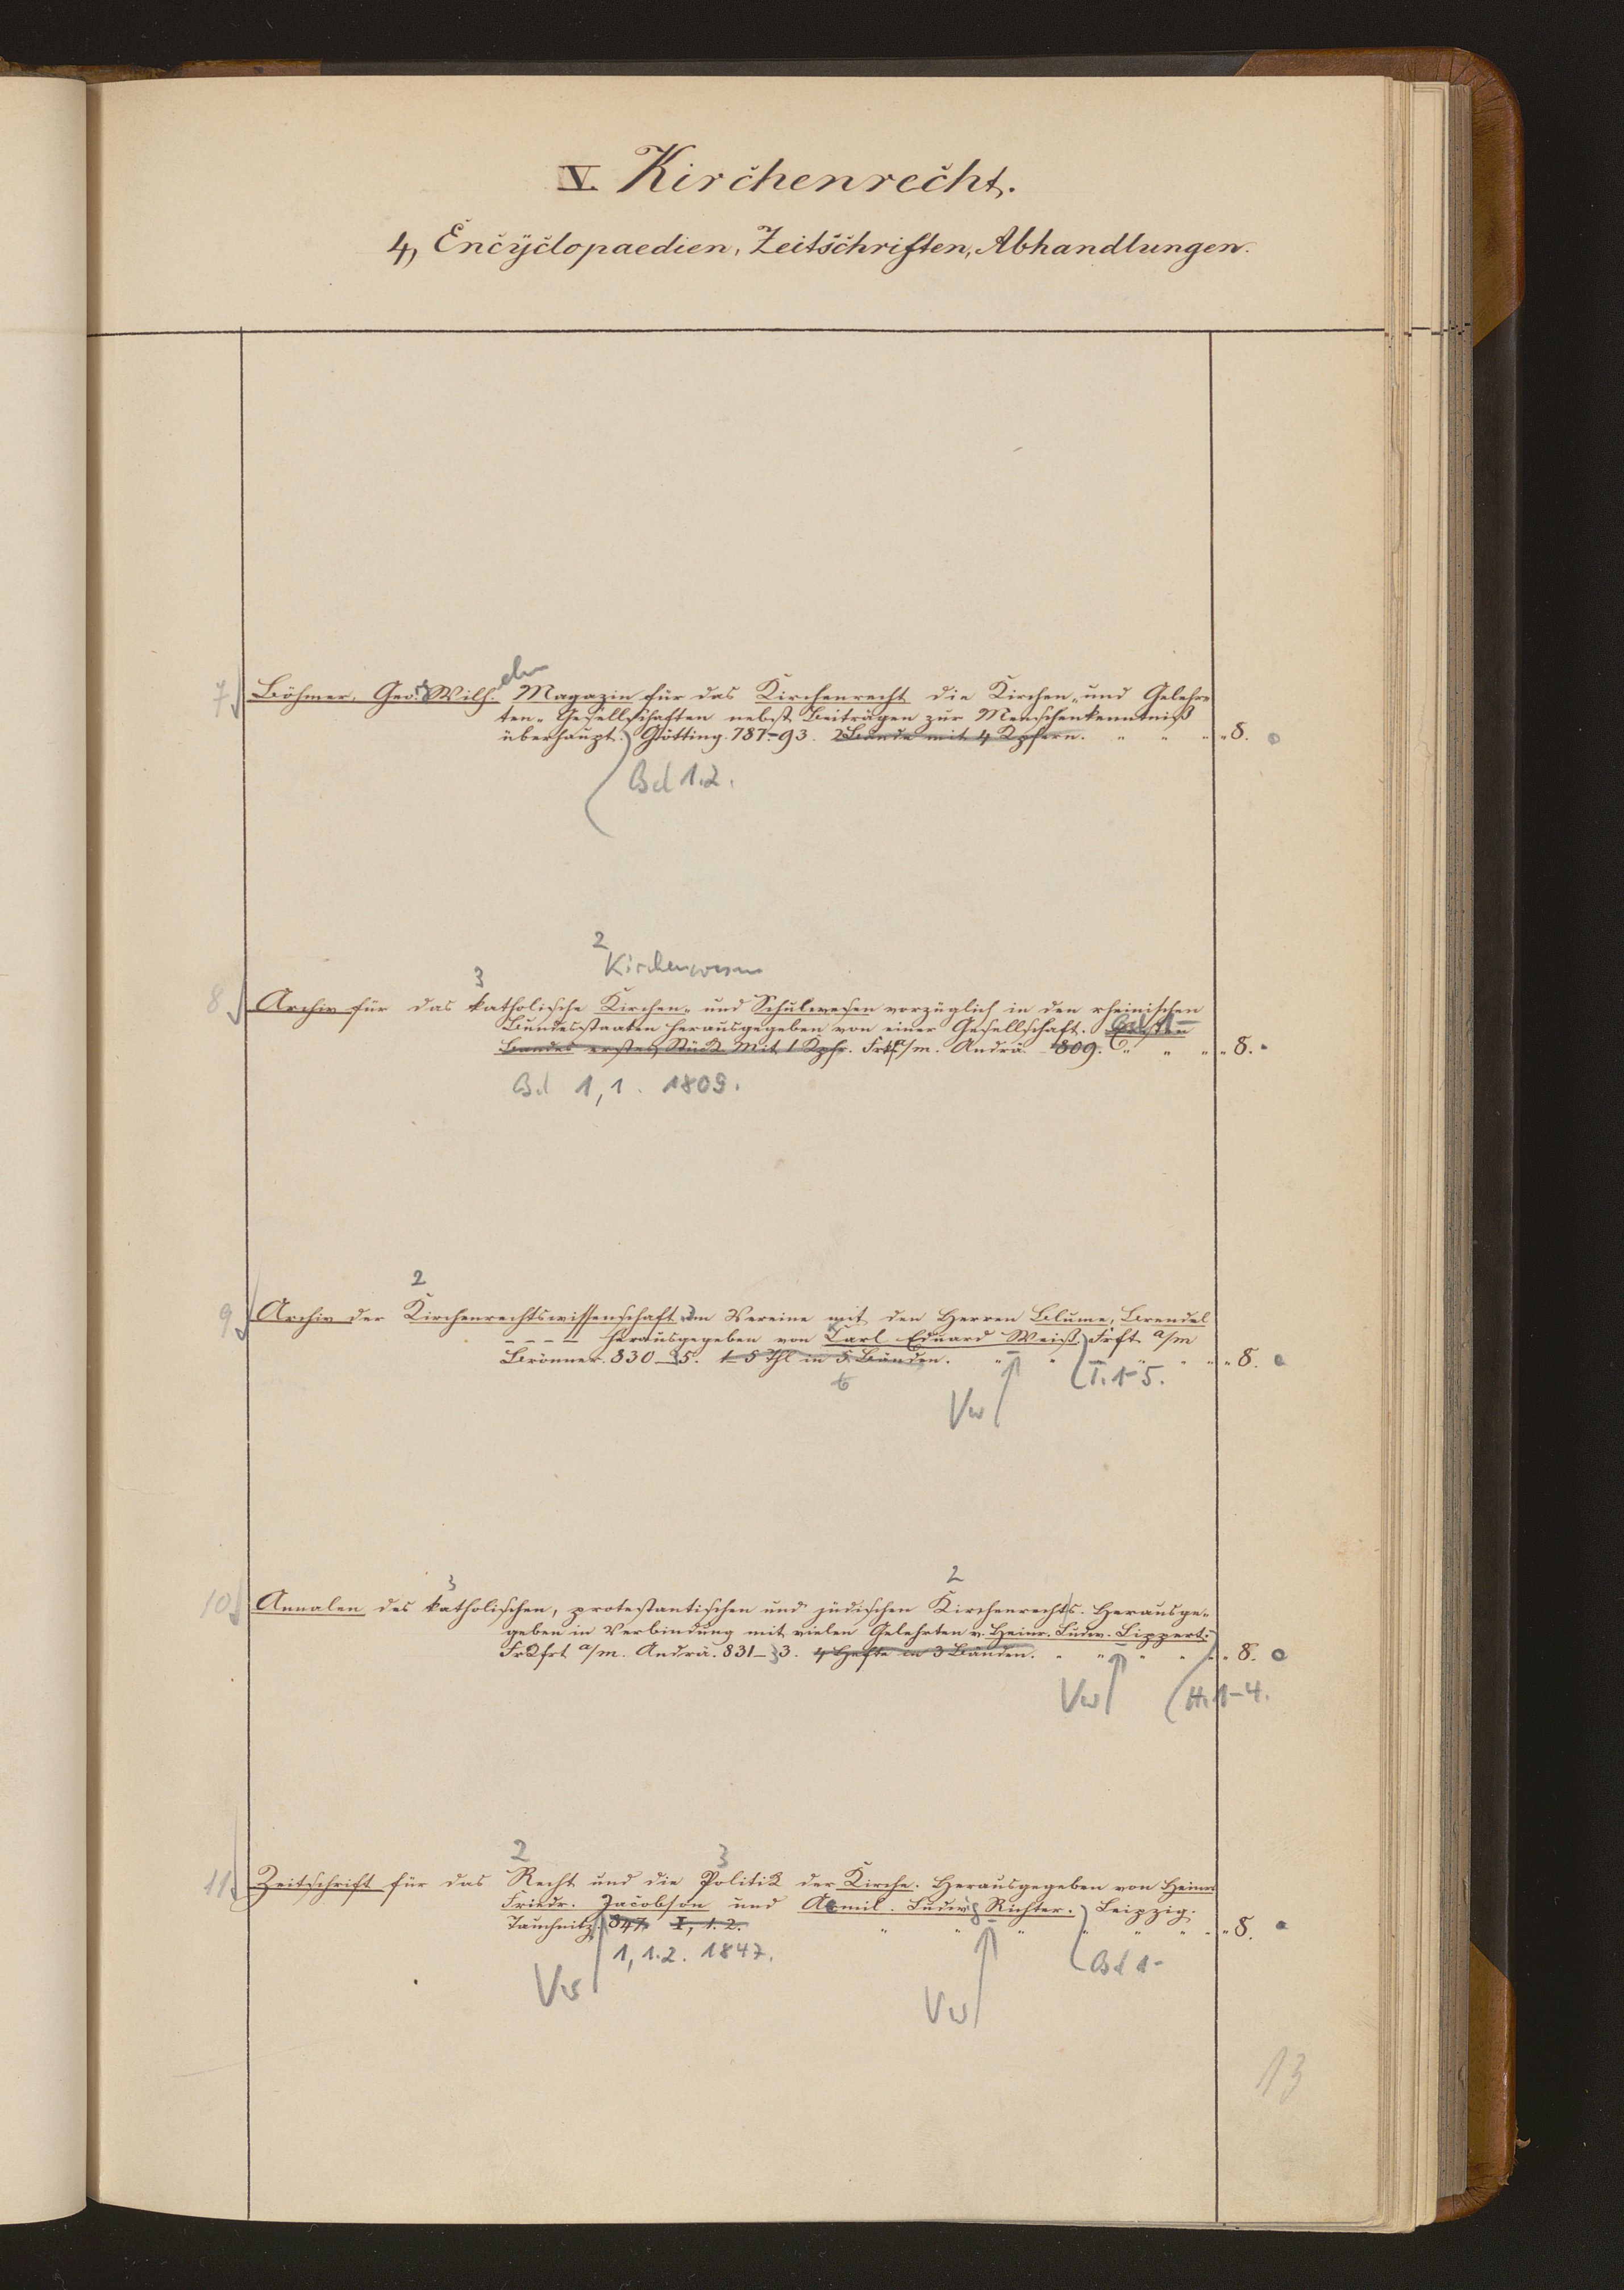 V. Kirchenrecht.
4, Encÿclopaedien, Zeitschriften, Abhandlungen.
elm
7 Böhmer, Geo. Wilh. Magazin für das Kirchenrecht die Kirchen- und Gelehr-
ten-Gesellschaften nebst Beiträgen zur Menschenkenntniß
überhaupt. Götting. 787-93. 2 Bände mit 4 Kpfern. " " " 8.
Bd 1.2.
2
Kirchenwesen
3
8 Archiv für das katholische Kirchen- und Schulwesen vorzüglich in den rheinischen
Bundesstaaten herausgegeben von einer Gesellschaft. Ersten
Bandes erstes Stück Mit 1 Kpfr. Frkf a/m. Andrä. 1809. " " " 8.
Bd 1,1. 1809.
2
9 Archiv der Kirchenrechtswissenschaft im Vereine mit den Herren Blume, Brendel
- - - - herausgegeben von Carl Eduard Weiß. Frft a/m
Brönner. 830-35. 1-5 Thl in 5 Bänden. " " " 8.
T. 1-5.
Vw
3 2
10 Annalen des katholischen, protestantischen und jüdischen Kirchenrechts. Herausge-
geben in Verbindung mit vielen Gelehrten v. Heinr. Ludw. Lippert.
Frkfrt a/m. Andrä. 831-33. 4 Hefte in 3 Bänden. " " " " 8.
Vw H. 1-4.
2 3
11 Zeitschrift für das Recht und die Politik der Kirche. Herausgegeben von Heinr.
Friedr. Jacobson und Aemil. Ludwig Richter. Leipzig.
Tauchnitz. 847. I, 1. 2. " " " " " " 8.
1, 1.2. 1847. Bd 1-
Vw Vw
13